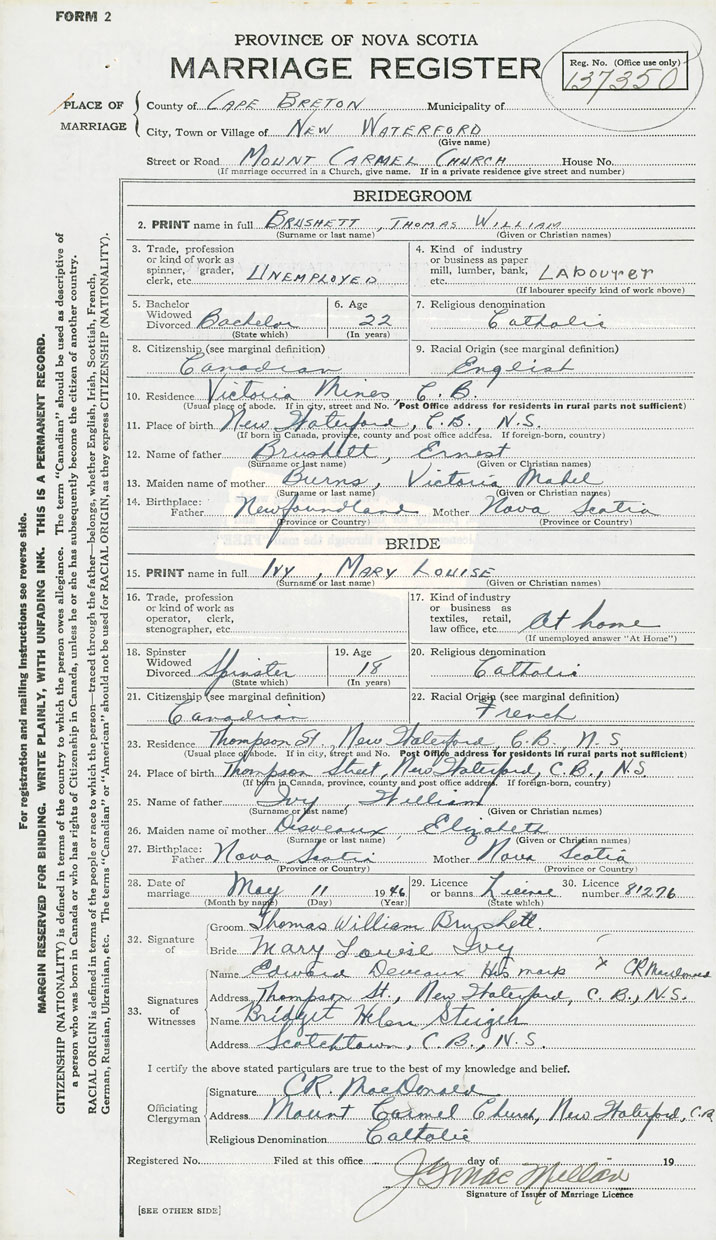 FORM 2
PROVINCE OF NOVA SCOTIA
MARRIAGE REGISTER
Reg. No. (Office use only)
137350
PLACE OF MARRIAGE
County of CAPE BRETON Municipality of
City, Town or Village of NEW WATERFORD
(Give name)
Street or Road MOUNT CARMEL CHURCH House No.
(If marriage occurred in a Church, give name. If in a private residence give street and number)
BRIDEGROOM
2. PRINT name in full BRUSHETT, THOMAS WILLIAM
(Surname or last name) (Given or Christian names)
3. Trade, profession or kind of work as spinner, grader, clerk, etc. UNEMPLOYED
4. Kind of industry or business as paper mill, lumber, bank, etc. LABOURER
(If labourer specify kind of work above)
5. Bachelor Widowed Divorced Bachelor
(State which)
6. Age 22
(In years)
7. Religious denomination
Catholic
8. Citizenship (see marginal definition)
Canadian
9. Racial Origin (see marginal definition)
English
10. Residence Victoria Mines, C.B.
(Usual place of abode. If in city, street and No. Post Office address for residents in rural parts not sufficient)
11. Place of birth New Waterford, C.B., N.S.
(If born in Canada, province, county and post office address. If foreign-born, country)
12. Name of father Brushett, Ernest
(Surname or last name) (Given or Christian names)
13. Maiden name of mother Burns, Victoria Mabel
(Surname or last name) (Given or Christian names)
14. Birthplace: Father Newfoundland Mother Nova Scotia
(Province or Country) (Province or Country)
BRIDE
15. PRINT name in full IVY, MARY LOUISE
(Surname or last name) (Given or Christian names)
16. Trade, profession or kind of work as operator, clerk, stenographer, etc.
17. Kind of industry or business as textiles, retail, law office, etc. At home
(If unemployed answer "At Home")
18. Spinster Widowed Divorced Spinster
(State which)
19. Age 18
(In years)
20. Religious denomination
Catholic
21. Citizenship (see marginal definition)
Canadian
22. Racial Origin (see marginal definition)
French
23. Residence Thompson St., New Waterford, C.B., N.S.
(Usual place of abode. If in city, street and No. Post Office address for residents in rural parts not sufficient)
24. Place of birth Thompson Street, New Waterford, C.B., N.S.
(If born in Canada, province, county and post office address. If foreign-born, country)
25. Name of father Ivy, William
(Surname or last name) (Given or Christian names)
26. Maiden name of mother Desveaux, Elizabeth
(Surname or last name) (Given or Christian names)
27. Birthplace: Father Nova Scotia Mother Nova Scotia
(Province or Country) (Province or Country)
28. Date of marriage May 11 1946
(Month by name) (Day) (Year)
29. Licence or banns Licence
(State which)
30. Licence number 81276
32. Signature of
Groom Thomas William Brushett.
Bride Mary Louise Ivy
33. Signatures of Witnesses
Name Edward Deveaux His mark X CR MacDonald
Address Thompson St., New Waterford, C.B., N.S.
Name Bridget Helen Steiger
Address Scotchtown, C.B., N.S.
I certify the above stated particulars are true to the best of my knowledge and belief.
Officiating Clergyman
Signature C.R. MacDonald
Address Mount Carmel Church, New Waterford, C.B.
Religious Denomination Catholic
Registered No. Filed at this office day of 19
J G MacMillan
Signature of Issuer of Marriage Licence
[SEE OTHER SIDE]
For registration and mailing instructions see reverse side.
MARGIN RESERVED FOR BINDING. WRITE PLAINLY, WITH UNFADING INK. THIS IS A PERMANENT RECORD.
CITIZENSHIP (NATIONALITY) is defined in terms of the country to which the person owes allegiance. The term "Canadian" should be used as descriptive of
a person who was born in Canada or who has rights of Citizenship in Canada, unless he or she has subsequently become the citizen of another country.
RACIAL ORIGIN is defined in terms of the people or race to which the person—traced through the father—belongs, whether English, Irish, Scottish, French,
German, Russian, Ukrainian, etc. The terms "Canadian" or "American" should not be used for RACIAL ORIGIN, as they express CITIZENSHIP (NATIONALITY).